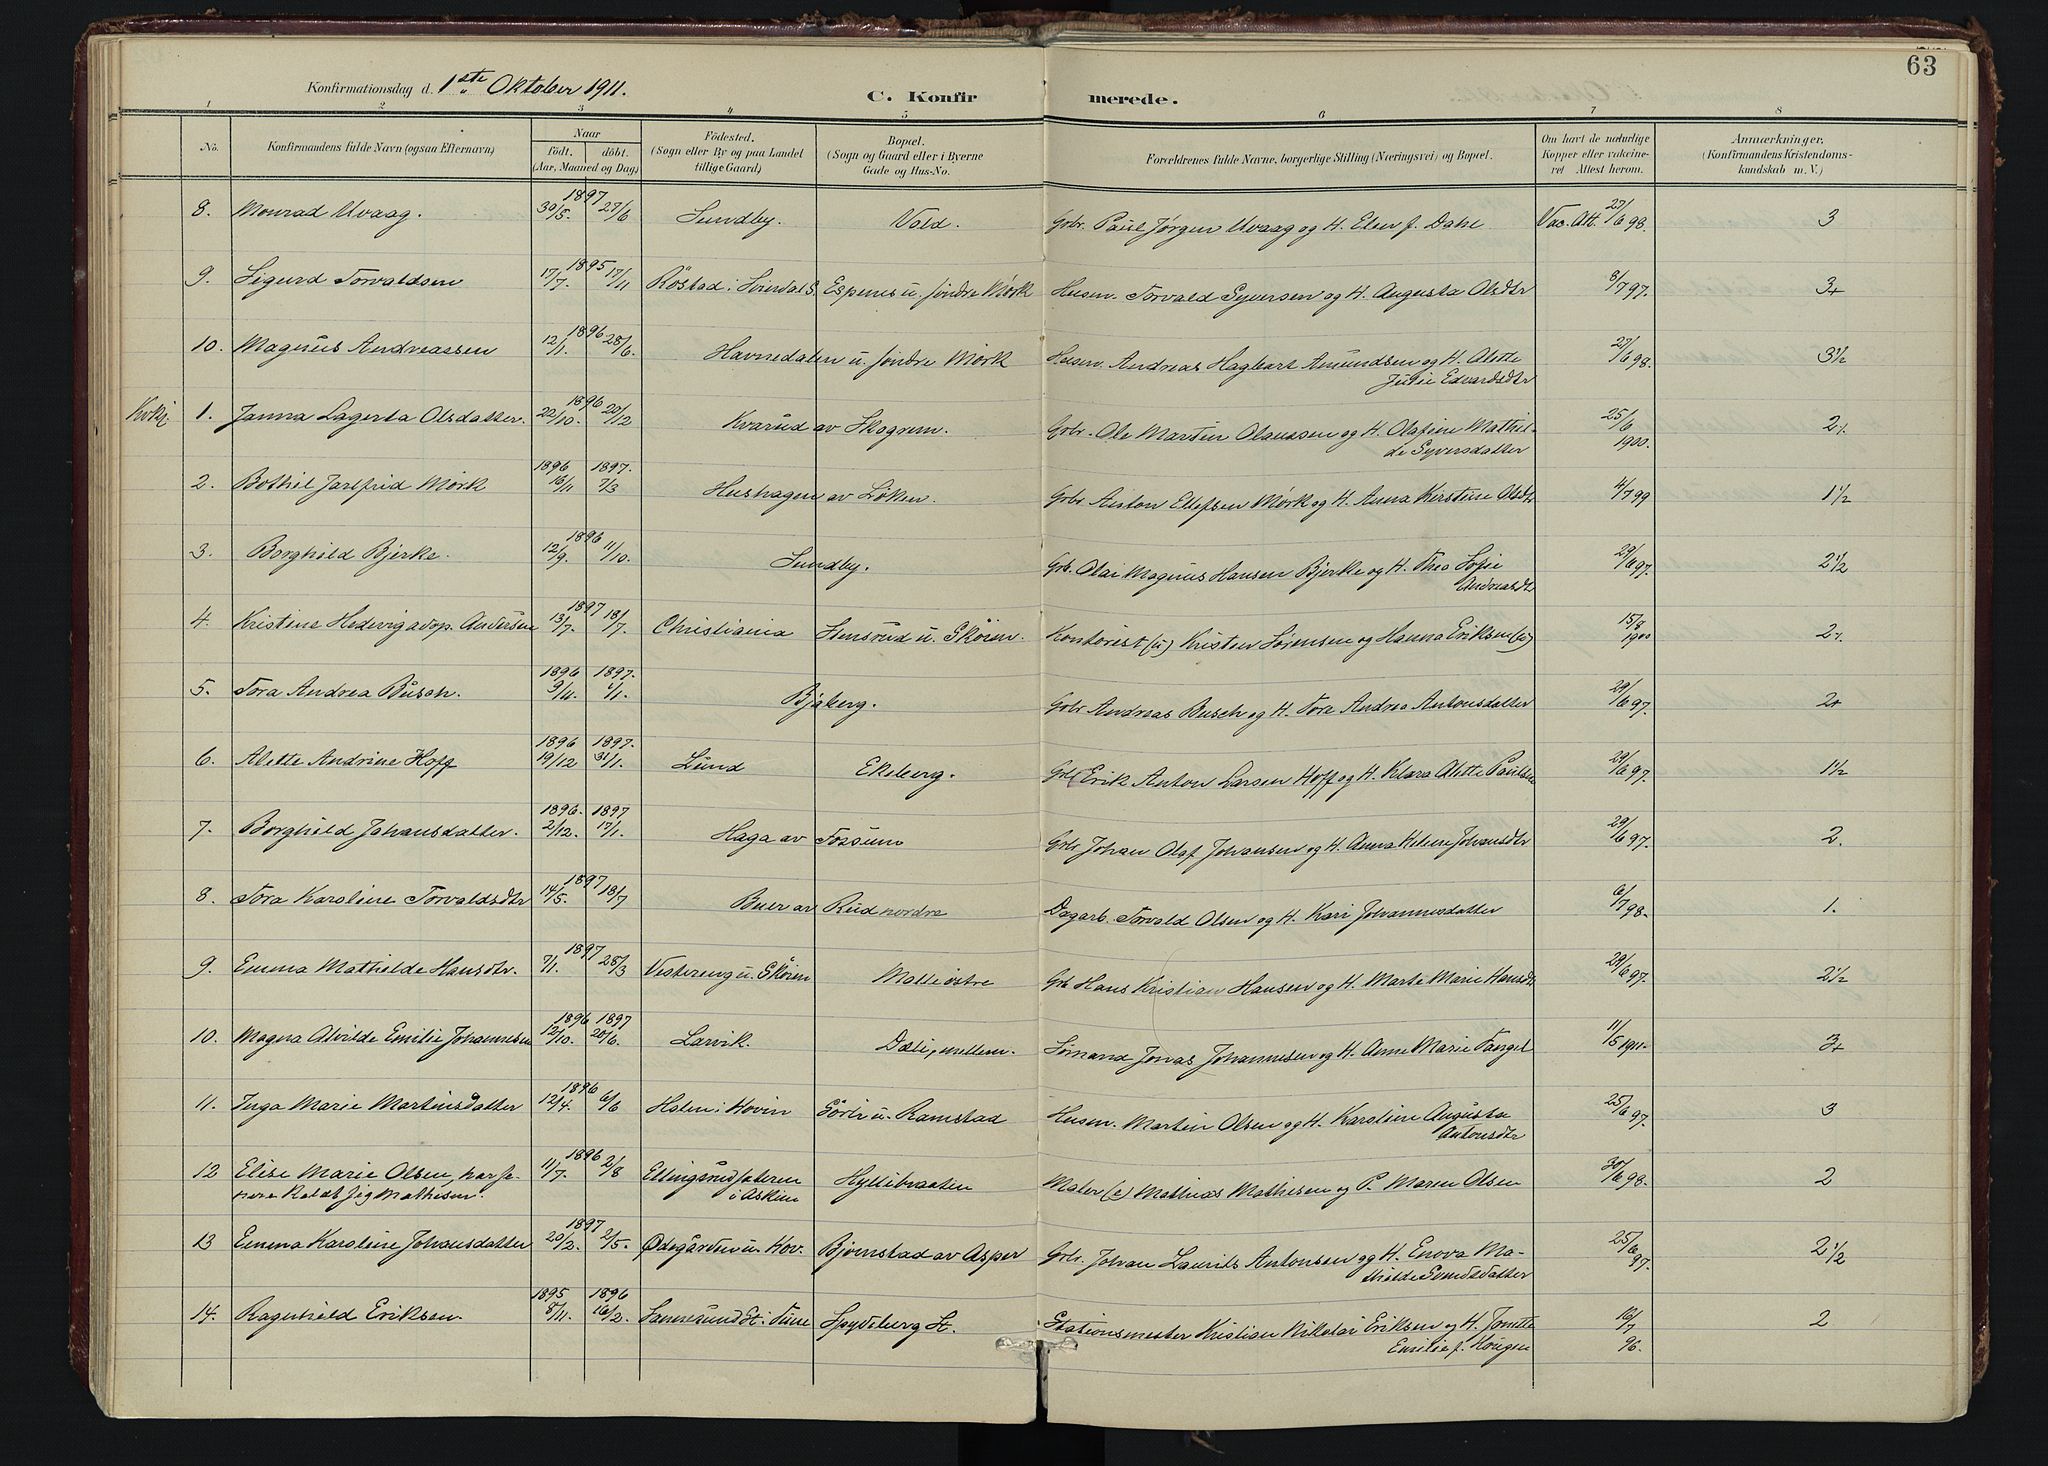 63
Konfirmationsdag d. 1ste Oktober 1911.
C. Konfirmerede.
1 2 3 4 5 6 7 8
No. Konfirmandens fulde Navn (ogsaa Efternavn) Naar födt. döbt. (Aar, Maaned og Dag) Födested. (Sogn eller By og paa Landet tillige Gaard) Bopæl. (Sogn og Gaard eller i Byerne Gade og Hus-No. Forældrenes fulde Navne, borgerlige Stilling (Næringsvei) og Bopæl. Om havt de naturlige Kopper eller vakcineret Attest herom. Anmærkninger, (Konfirmandens Kristendomskundskab m. V.)
8. Monrad Uvaag. 1897 30/5. 27/6 Sundby. Vold. Gbr. Paul Jørgen Uvaag og H. Elen f. Dahl Vac. Att. 27/6 98. 3
9. Sigurd Torvaldsen 1895 17/7. 17/11 Röstad i Svindal S. Espenes u. söndre Mörk Husm. Torvald Syversen og H. Augusta Olsdtr 8/7 97. 3+
10. Magnus Andreassen 1896 12/1. 28/6. Havnedalen u. söndre Mörk Husm. Andreas Hagbart Amundsen og H. Alette Julie Edvardsdtr 27/6 98. 3½
Kvkj. 1. Janna Lagerta Olsdatter. 1896 22/10. 20/12 Kvarud av Skogrem. Gbr. Ole Martin Olaussen og H. Olafine Mathilde Syversdatter 25/6 1900. 2÷
2. Bothil Jarlfrid Mörk 1896 16/11 1897. 7/3 Hushagen av Löken. Gbr Anton Ellefsen Mörk og H. Anna Kirstine Olsdtr 4/7 99 1½
3. Borghild Bjerke. 1896 12/9. 11/10. Sundby. Gb. Olai Magnus Hansen Bjerke og H. Thea Sofie Andreasdtr 29/6 97. 2½
4. Kristine Hedevig adop. Andersen 1897 13/7. 18/7. Christiania Stensrud u. Sköien. Kontorist (u) Kristen Sörensen og Hanna Eriksen (u) 15/8 1900 2÷
5. Tora Andrea Busch. 1896 9/11. 1897. 1/1. Bjaberg. Gbr Andreas Busch og H. Tora Andrea Antonsdatter 29/6 97. 2+
6. Alette Andrine Hoff 1896 19/12 1897. 31/1. Lund Ekeberg. Gbr Erik Anton Larsen Hoff og H. Klara Alette Paulsen 29/6 97. 1½
7. Borghild Johansdatter. 1896. 2/12. 1897 17/1. Haga av Fossum Gbr Johan Olaf Johansen og H. Anna Helene Johansdtr 29/6 97. 2.
8. Tora Karoline Torvaldsdtr 1897 14/5. 18/7 Buer av Rud nordre Dagarb. Torvald Olsen og H. Kari Johannesdatter 6/7 98. 1.
9. Emma Mathilde Hansdtr. 1897 7/1. 28/3 Vestereng u. Sköien Molle östre Gbr Hans Kristian Hansen og H. Marte Marie Hansdtr 29/6 97. 2½
10. Magna Alvilde Emilie Johannesen 1896 12/10. 1897 20/6. Larvik. Dæli, mellem. Sömand Jonas Johannesen og H. Anne Marie Tangel 11/5 1911. 3+
11. Inga Marie Martinsdatter 1896 12/4. 6/6 Holen i Hovin Sörli u. Ramstad Husm. Martin Olsen og H. Karoline Augusta Antonsdtr 25/6 97. 3
12 Elise Marie Olsen, har senere kaldt sig Mathisen. 1896 11/7. 2/8 Ellingsrudsæteren i Askim Hyllibraaten Maler (e) Mathias Mathisen og P. Maren Olsen 30/6 98. 2
13 Emma Karoline Johansdatter 1897 20/2. 2/5. Ödegården u. Hov. Bjönstad av Asper Gbr. Johan Laurits Antonsen og H. Enova Mathilde Svendsdatter 25/6 97. 2½
14. Ragnhild Eriksen. 1895 8/11. 1896 16/2. Sannesund St. i Tune Spydeberg St. Stationsmester Kristian Nikolai Eriksen og H. Tonette Emilie f. Haugen 16/7 96. 2